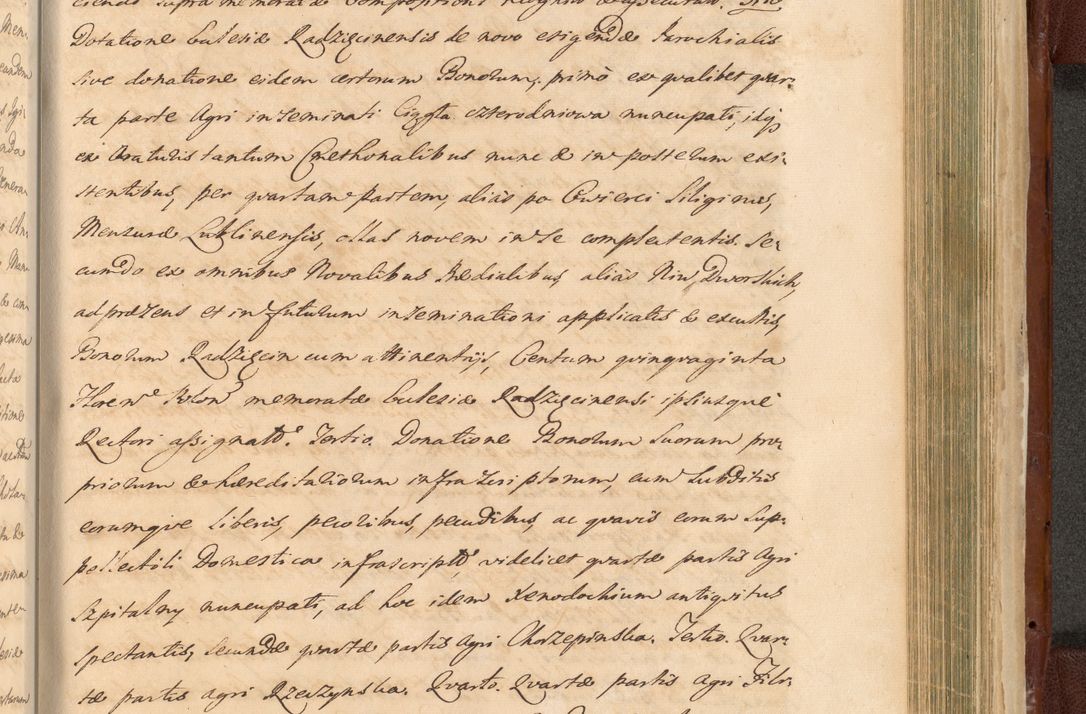 Dotatione Ecclesiæ Radzięcinensis de novo erigendæ Parochialis
sive donatione eidem certorum Bonorum, primò ex qvalibet qvar-
ta parte Agri inseminati Ciągła czterodniowa nuncupati, idq3
ex Araturis tantum Cmethonalibus nunc & in posterum exi-
stentibus, per qvartam partem, alias po Cwierci Siliginis,
Mensuræ Lublinensis, ollas novem in se complectentis. Se-
cundo ex omnibus Novalibus Prædialibus, aliàs Niw Dworskich,
ad præsens et in futurum inseminationi applicatis & excultis,
Bonorum Radzięcin cum attinentijs, Centum qvinqvaginta
Floren. Polon. memoratæ Ecclesiæ Radzięcinensi ipsiusque
Rectori assignat. Tertio. Donatione Bonorum Suorum pro-
priorum & hæreditariorum infrascriptorum, cum Subditis
eorumqve Liberis, pecoribus, pecudibus, ac qvavis eorum Sup-
pellectili Domestica infrascript, videlicet qvartæ partis Agri
Szpitalny nuncupati, ad hoc idem Xenodochium antiqvitus
spectantis, secundæ qvartæ partis Agri Chorzepinska. Tertio. Qvar-
tæ partis agri Rzeczynska. Qvarto. Qvartæ partis Agri